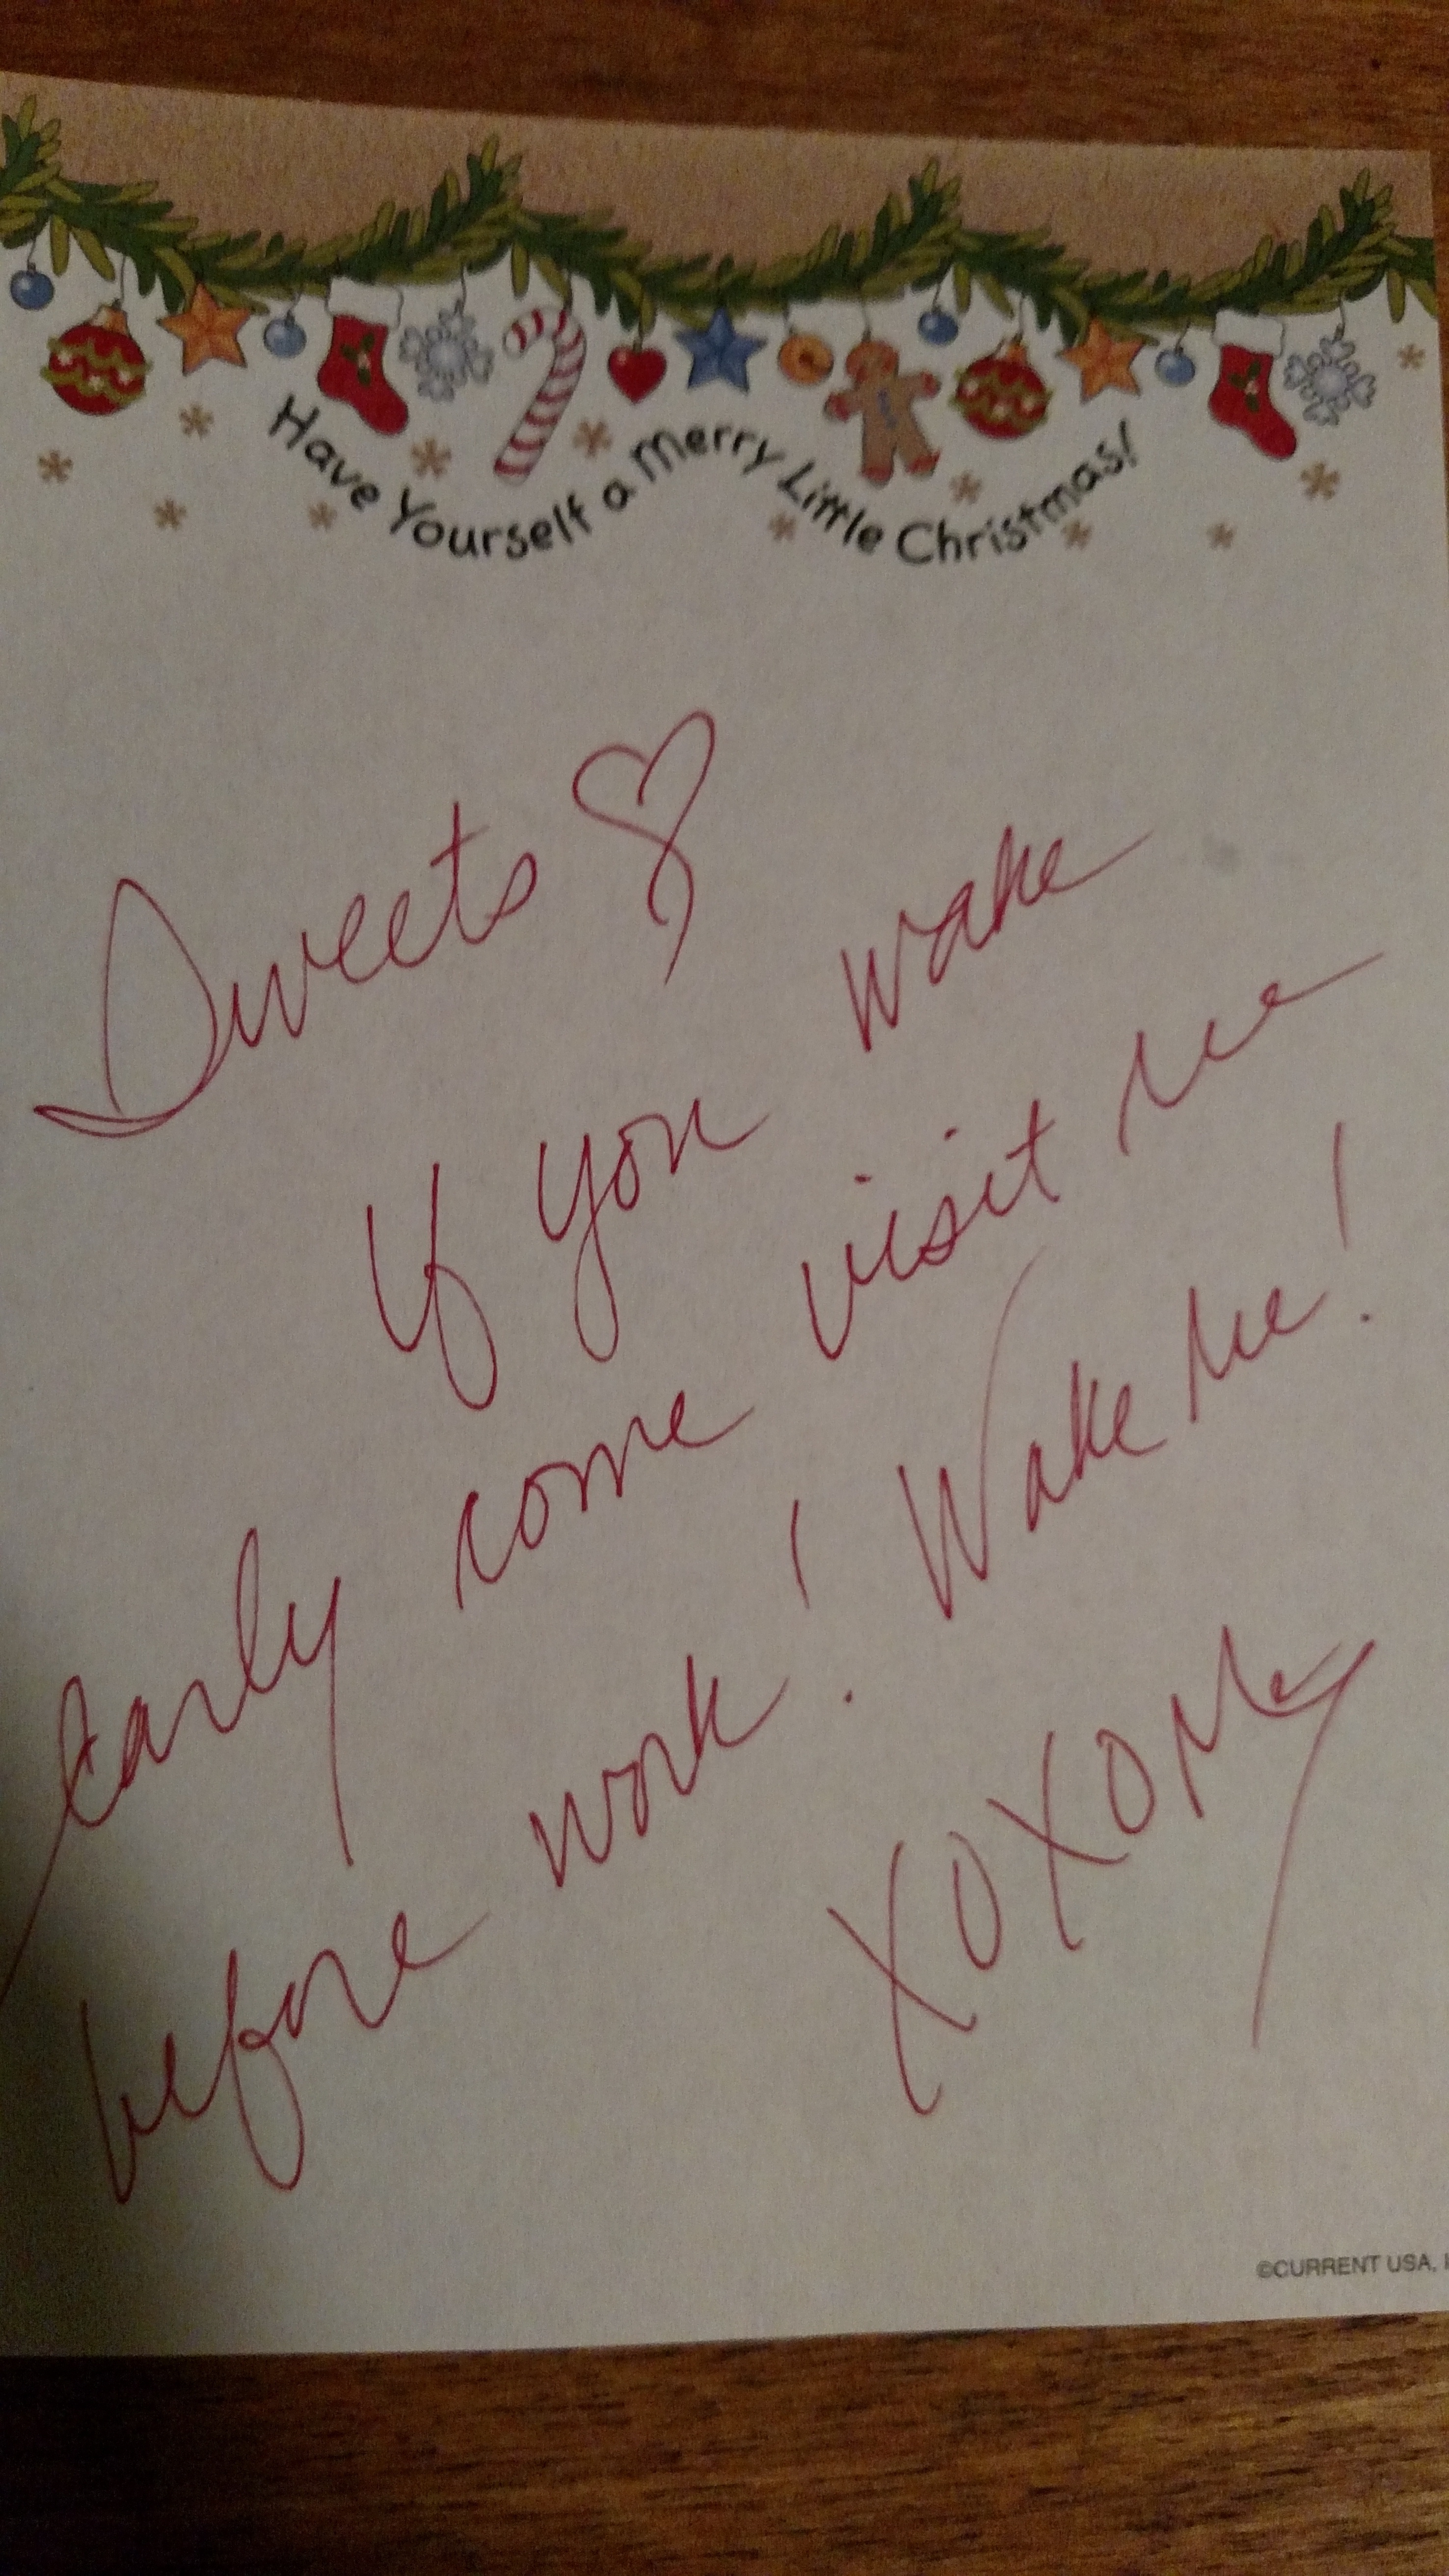 Have Yourself a Merry Little Christmas!
Sweets ♡
If you wake
early come visit me
before work! Wake Me!
XOXO Me
©CURRENT USA, I